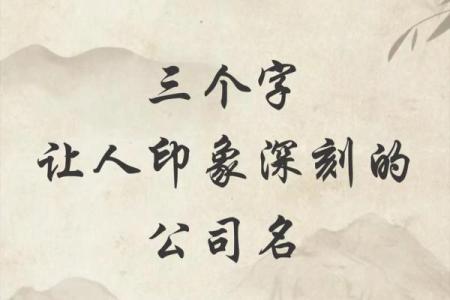 三个字
让人印象深刻的
公司名